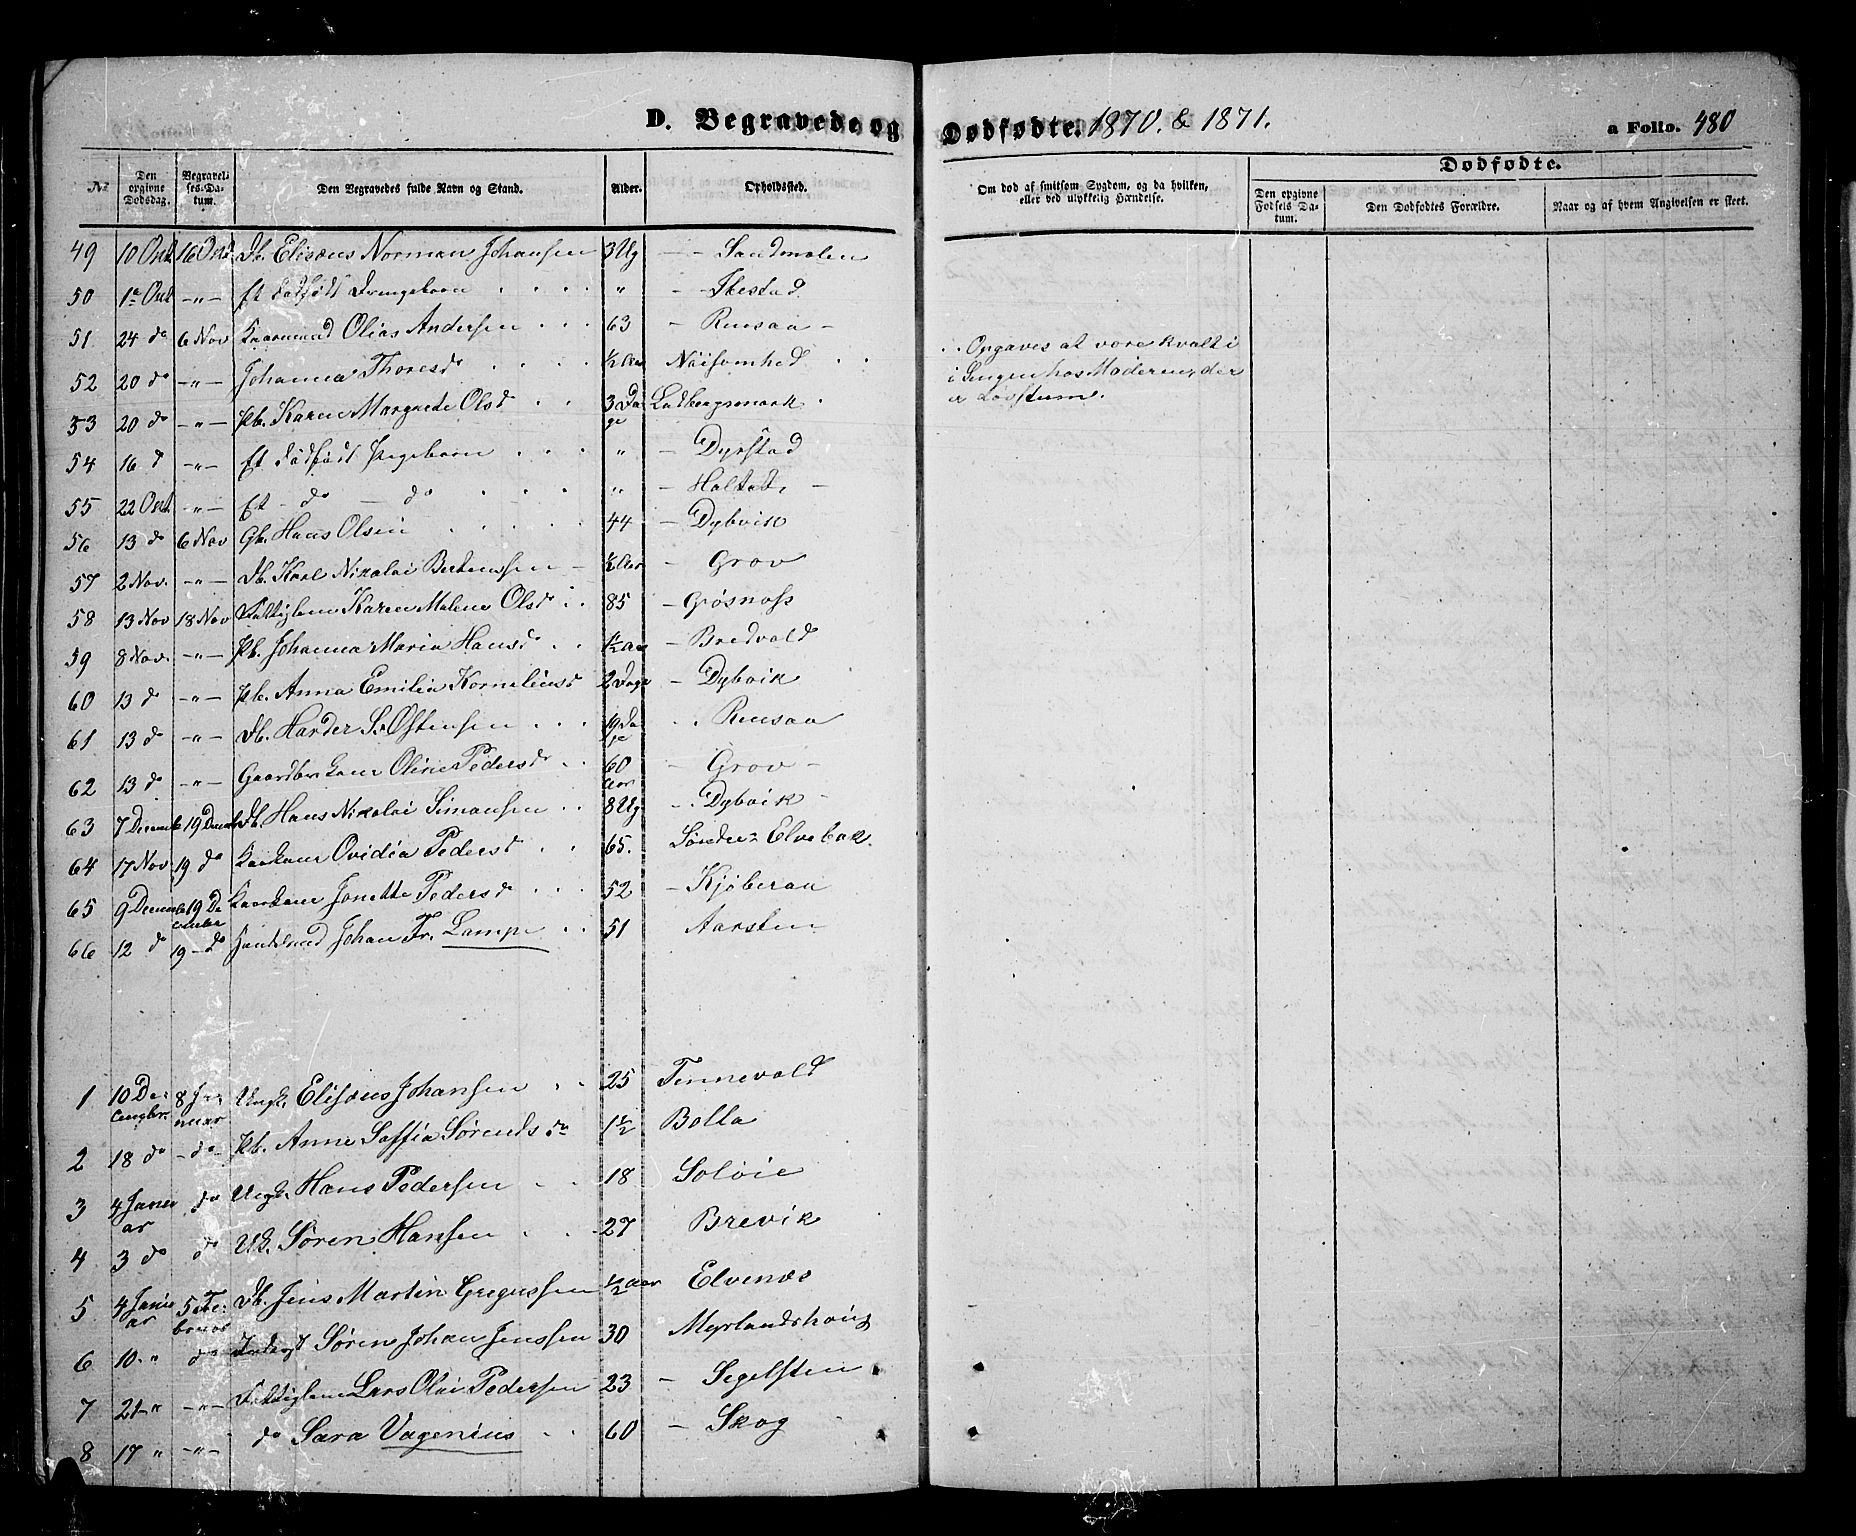 D. Begravede og Dødfødte. 1870. & 1871. a Folio. 480
№ Den opgivne Dødsdag. Begravelses-Datum. Den Begravedes fulde Navn og Stand. Alder. Opholdssted. Om død af smitsom Sygdom, og da hvilken, eller ved ulykkelig Hændelse. Dødfødte. Den opgivne Fødsels Datum. Den Dødfødtes Forældre. Naar og af hvem Angivelsen er skeet.
49 10 Oct 16 Oct Db. Elisæus Norman Johansen 3 Ug — - Sandmolen
50 Oct -"- Et dødfødt Drengebarn " - Ibestad
51 24 do 6 Nov Kaarmand Olias Andersen 63 - Rensaa -
52 20 do -"- Johanna Thoresdr ½ Aar Nöisomhed
53 20 do -"- Pb. Karen Margrete Olsd 3 Dage Ladbergsmark
. . Opgaves at være kvalt i
i Sengen hos Moderen, der
er Døvstum.
54 16 d -"- Et dødfødt Pigebarn " - Dyrstad
55 22 Oct -"- Et - do - do " - Halstad, -
56 13 do 6 Nov Gb. Hans Olsen 44 - Dybvik
57 2 Nov. -"- Db. Karl Nikolai Berteussen - ½ Aar - Grov
58 13 Nov 18 Nov Fattiglem Karen Malena Olsdr 85 - Grøsnæss
59 8 Nov. -"- Pb. Johanna Maria Hansdr ½ Aar - Bredvold
60 13 d -"- Pb. Anna Emilia Korneliusd 2 Dage - Dybvik
61 13 do -"- Db. Harder S. Østensen 19 Dage - Rensaa
62 13 do -"- Gaardbr kone Oline Pedersdr 60 Aar - Grov -
63 7 Decemb 19 Decemb Db. Hans Nikolai Simonsen 8 Ug - Dybvik -
64 17 Nov 19 do Kaarkone Ovidia Pedersdr 65. Sønder Elvebak.
65 9 Decemb 19 December Kaarkone Jonette Pedersdr 52 - Kjøberau
66 12 do 19 - do Johan Fr. Lampe 51 Aarsten
1 10 December 8 Januar Ungk. Elisæus Johansen 25 Tennevold
2 18 do - do - Pb. Anne Saffia Sørensdr 1½ Bolla
3 4 Januar do Ungk. Hans Pedersen 18 Soløie
4 3 do do Uk. Søren Hansen 27 Brevik
5 4 Januar 5 Februar Db. Jens Martin Gregussen ½ Aar Elvenæs
6 10. " do Inderst Søren Johan Jenssen 30 Myrlandshaug
7 21 " -"- Fattiglem Lars Olai Pedersen 23 - Segelsten
8 17 " -"- do Sara Vagenius 60 - Skog